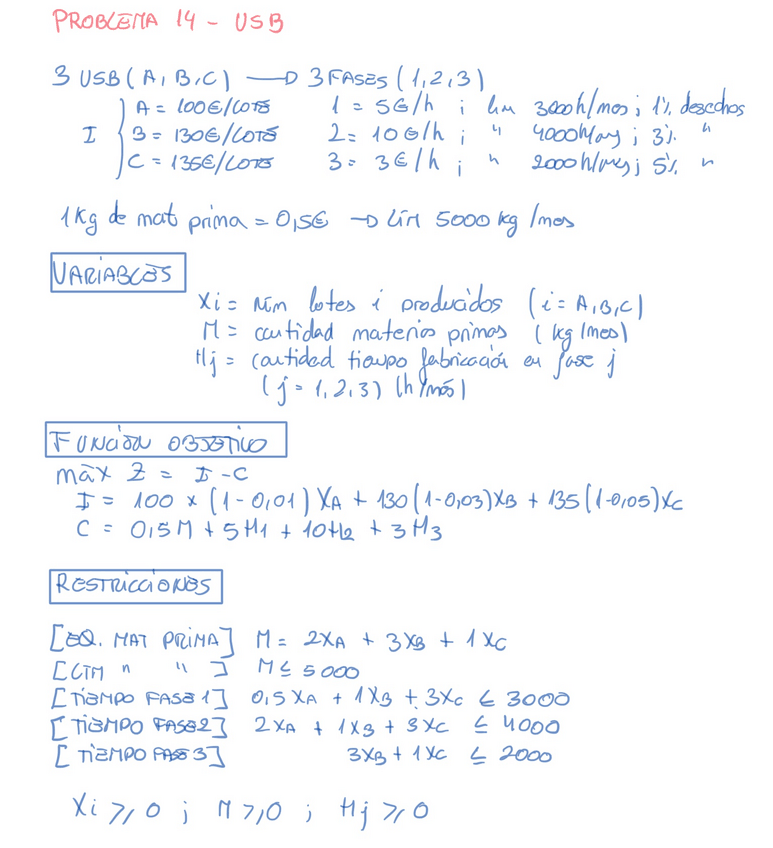 PROBLEMA 14 - USB
3 USB (A, B, C) → 3 FASES (1, 2, 3)
I { A = 100€/LOTE 1 = 5€/h ; lim 3000h/mes ; 1% desechos
B = 130€/LOTE 2 = 10€/h ; " 4000h/mes ; 3% "
C = 135€/LOTE 3 = 3€/h ; " 2000h/mes ; 5% "
1 Kg de mat prima = 0,5€ → LIM 5000 kg /mes
VARIABLES
Xi = Núm lotes i producidos (i = A, B, C)
M = cantidad materias primas (kg/mes)
Hj = cantidad tiempo fabricación en fase j
(j = 1, 2, 3) (h/mes)
FUNCIÓN OBJETIVO
máx Z = I - C
I = 100 x (1-0,01) XA + 130 (1-0,03) XB + 135 (1-0,05) XC
C = 0,5M + 5H1 + 10H2 + 3H3
RESTRICCIONES
[EQ. MAT PRIMA] M = 2XA + 3XB + 1XC
[LIM " " ] M ≤ 5000
[TIEMPO FASE 1] 0,5XA + 1XB + 3XC ≤ 3000
[TIEMPO FASE 2] 2XA + 1XB + 3XC ≤ 4000
[TIEMPO FASE 3] 3XB + 1XC ≤ 2000
Xi ≥ 0 ; M ≥ 0 ; Hj ≥ 0